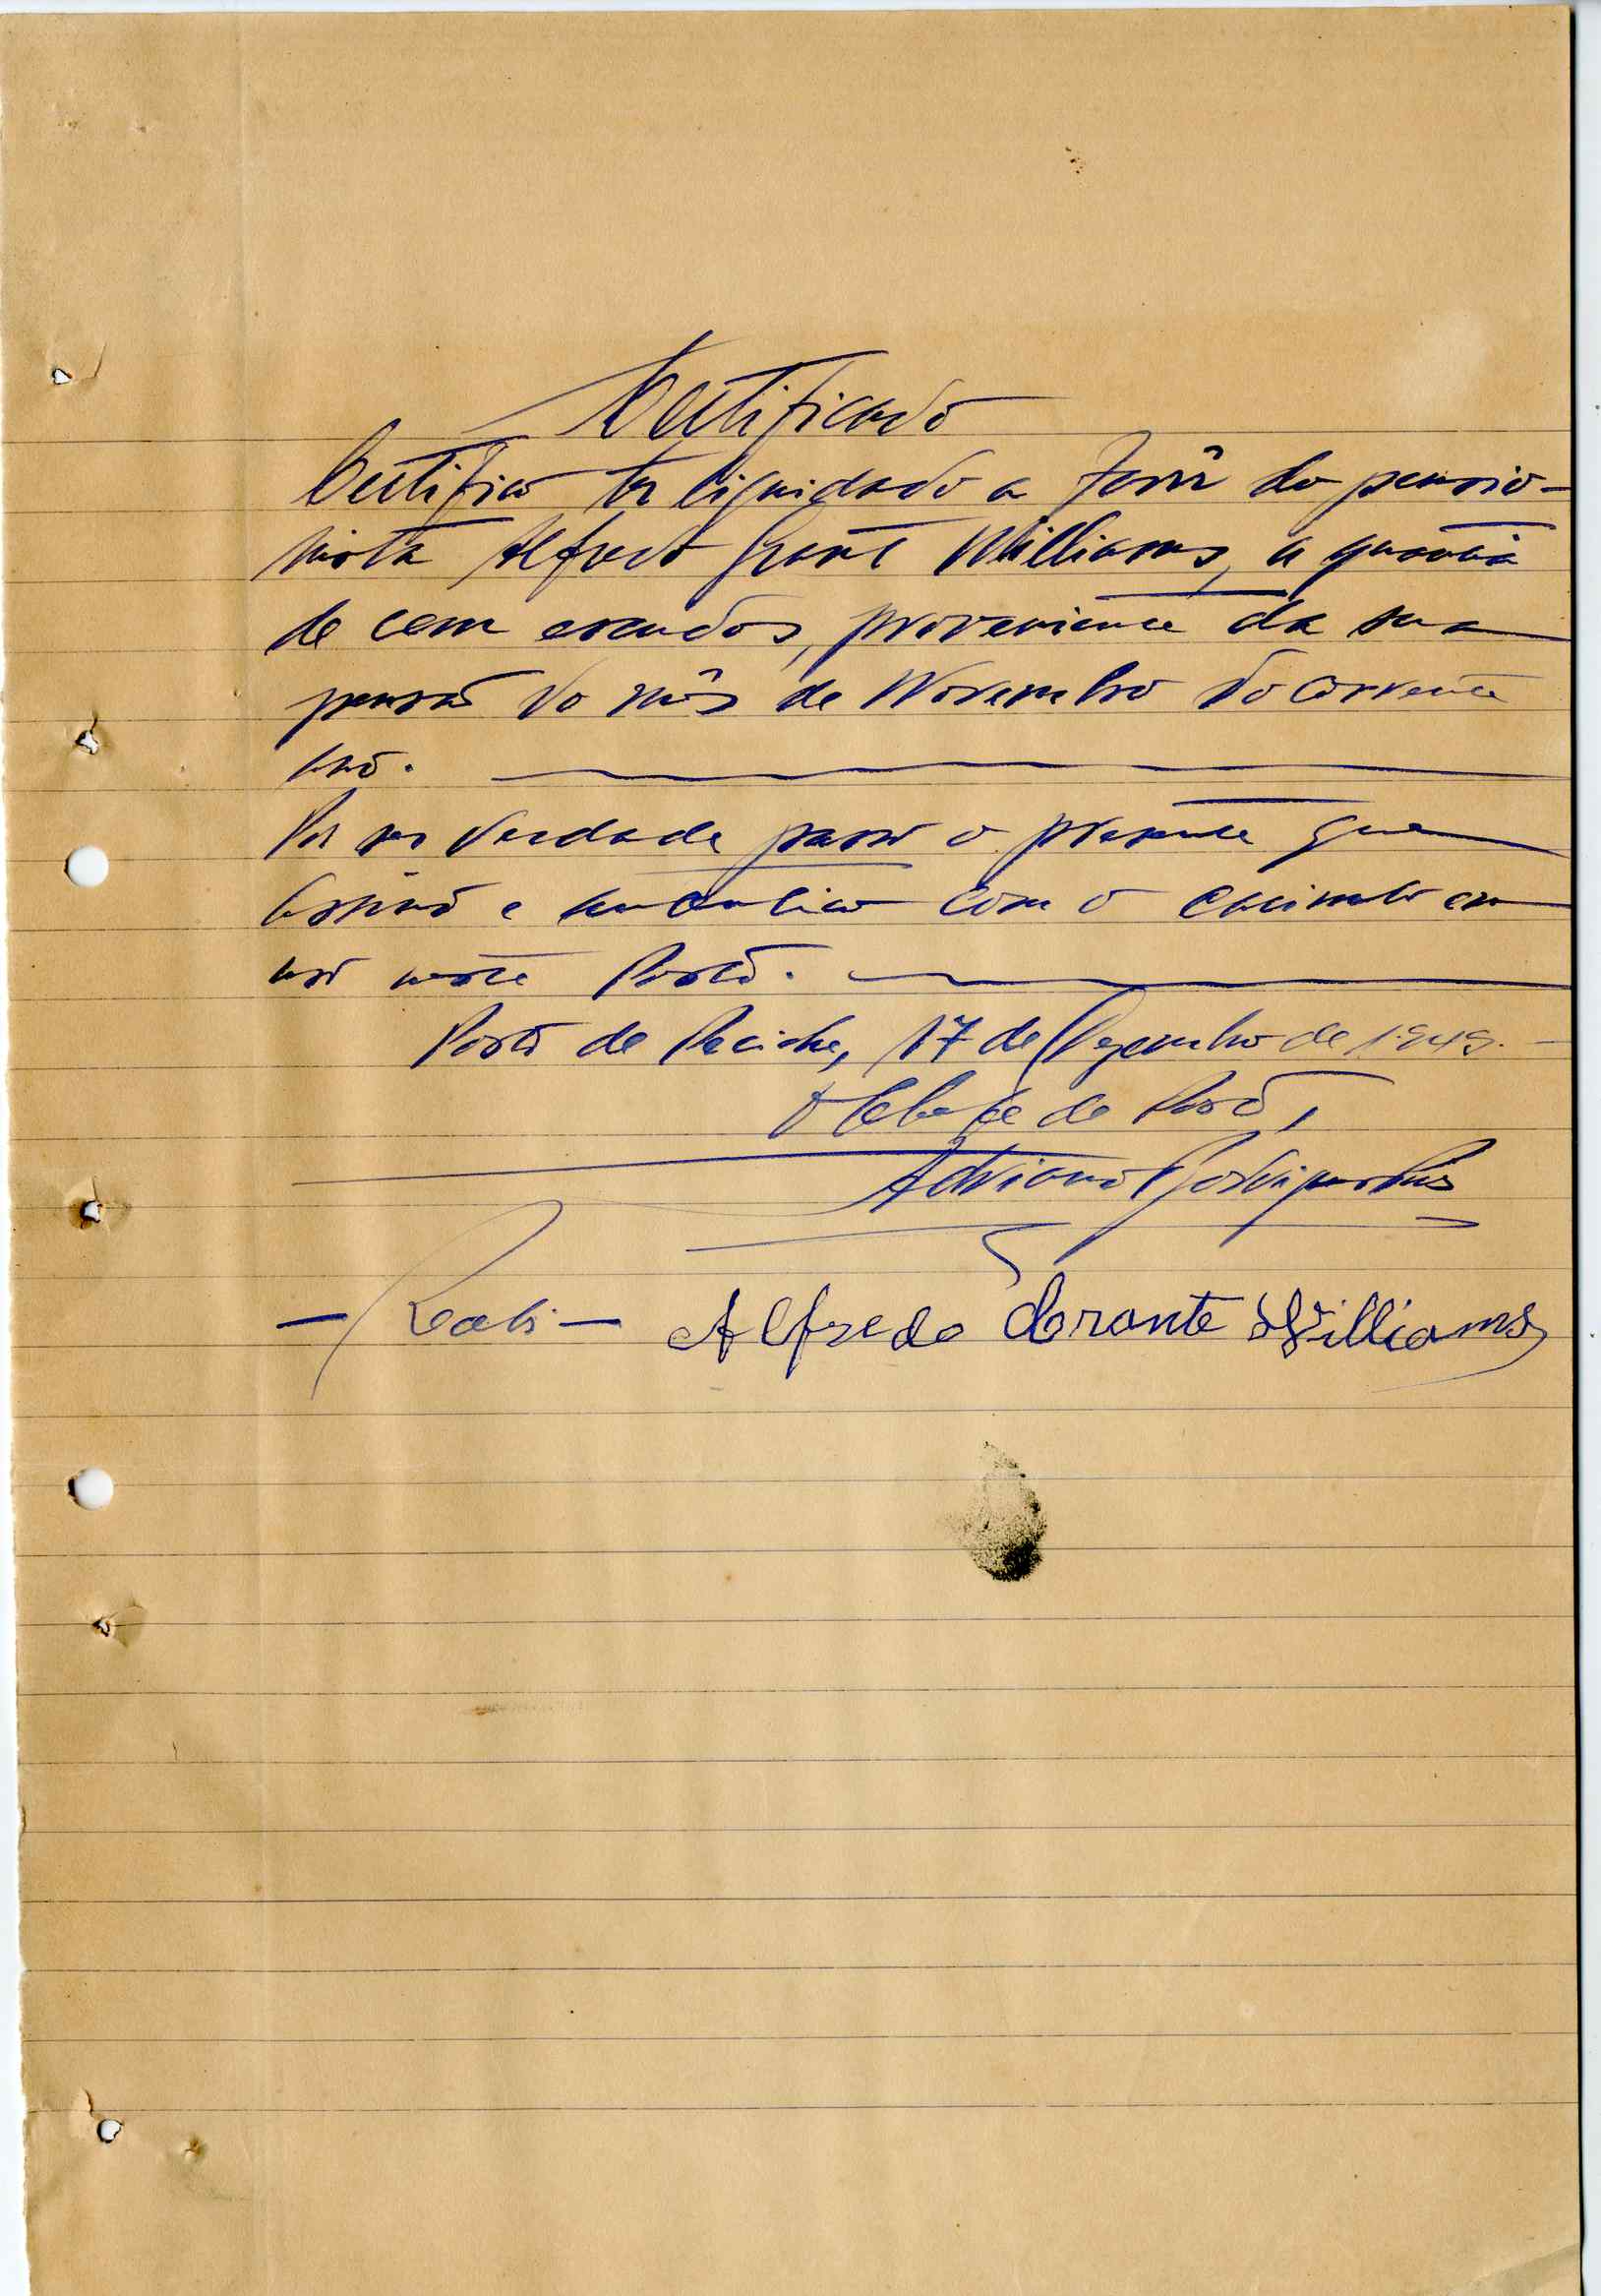 Certificado
Certifico ter liquidado a José do pensio-
nista Alfred Grant Williams, a quantia
de cem escudos, proveniente da sua
pensão do mês de Novembro do corrente
ano.
Por ser verdade passo o presente que
assino e autentico com o carimbo em
uso neste Posto.
Posto de Peciche, 17 de Dezembro de 1949.
O Chefe de Posto,
Adriano Rodrigues
Alfredo Grante Williams